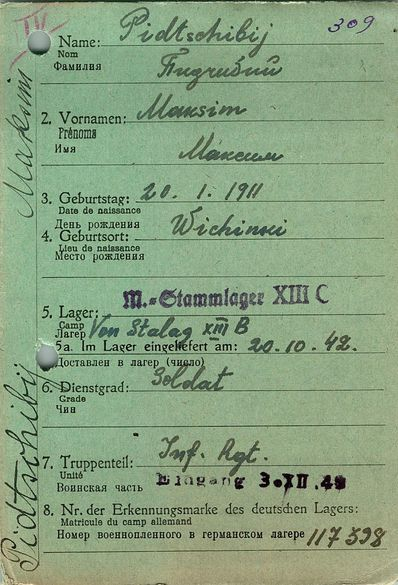 IV
309
Name: Pidtschibij
Nom
Фамилия Пидчибий
2. Vornamen: Maksim
Prénoms
Имя Максим
3. Geburtstag: 20. 1. 1911
Date de naissance
День рождения
4. Geburtsort: Wichinski
Lieu de naissance
Место рождения
5. Lager: M.-Stammlager XIII C
Camp
Лагерь Von Stalag XIII B
5a. Im Lager eingeliefert am: 20.10.42.
Доставлен в лагер (число)
6. Dienstgrad: Soldat
Grade
Чин
7. Truppenteil: Inf. Rgt.
Unité
Воинская часть Eingang 3.XII.42
8. Nr. der Erkennungsmarke des deutschen Lagers:
Matricule du camp allemand
Номер военнопленного в германском лагере 117 398
Pidtschibij Maksim